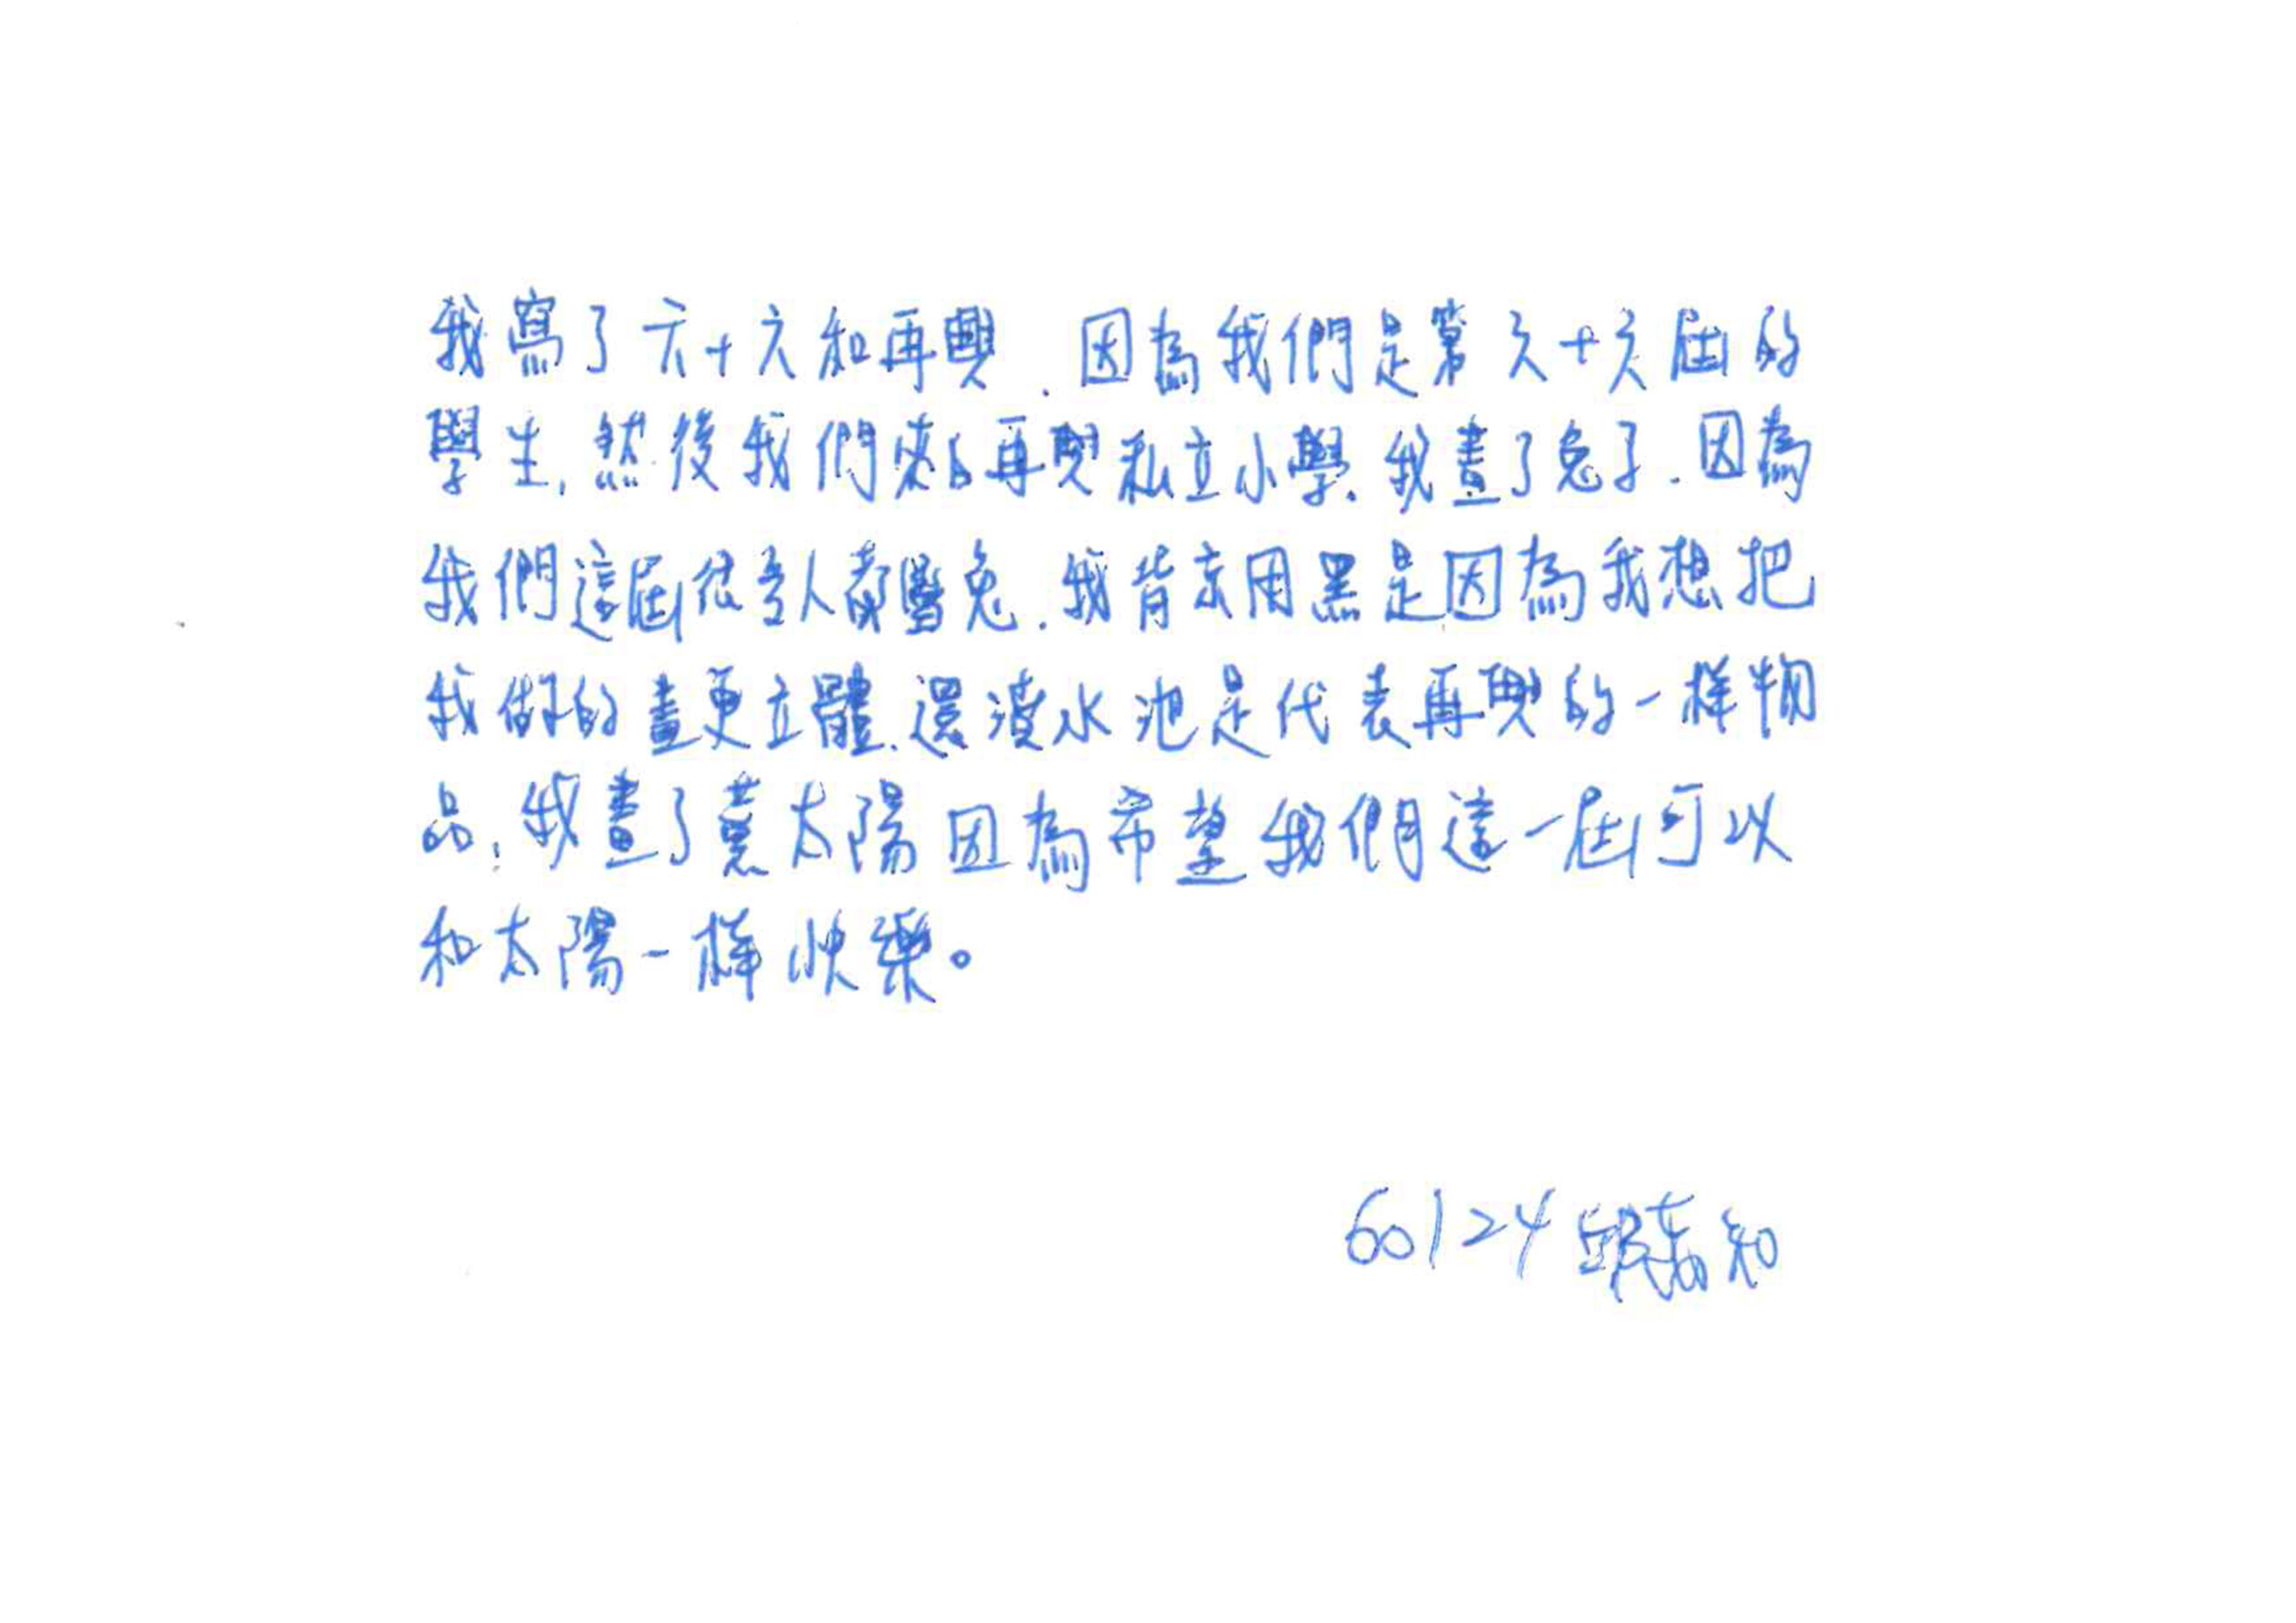 我寫了六十六和再興.因為我們是第六十六屆的
學生,然後我們來自再興私立小學.我畫了兔子.因為
我們這屆很多人都屬兔.我背京用黑是因為我想把
我做的畫更立體.還有水池是代表再興的一樣物
品,我畫了太陽因為希望我們這一屆可以
和太陽一樣快樂。
60124 知